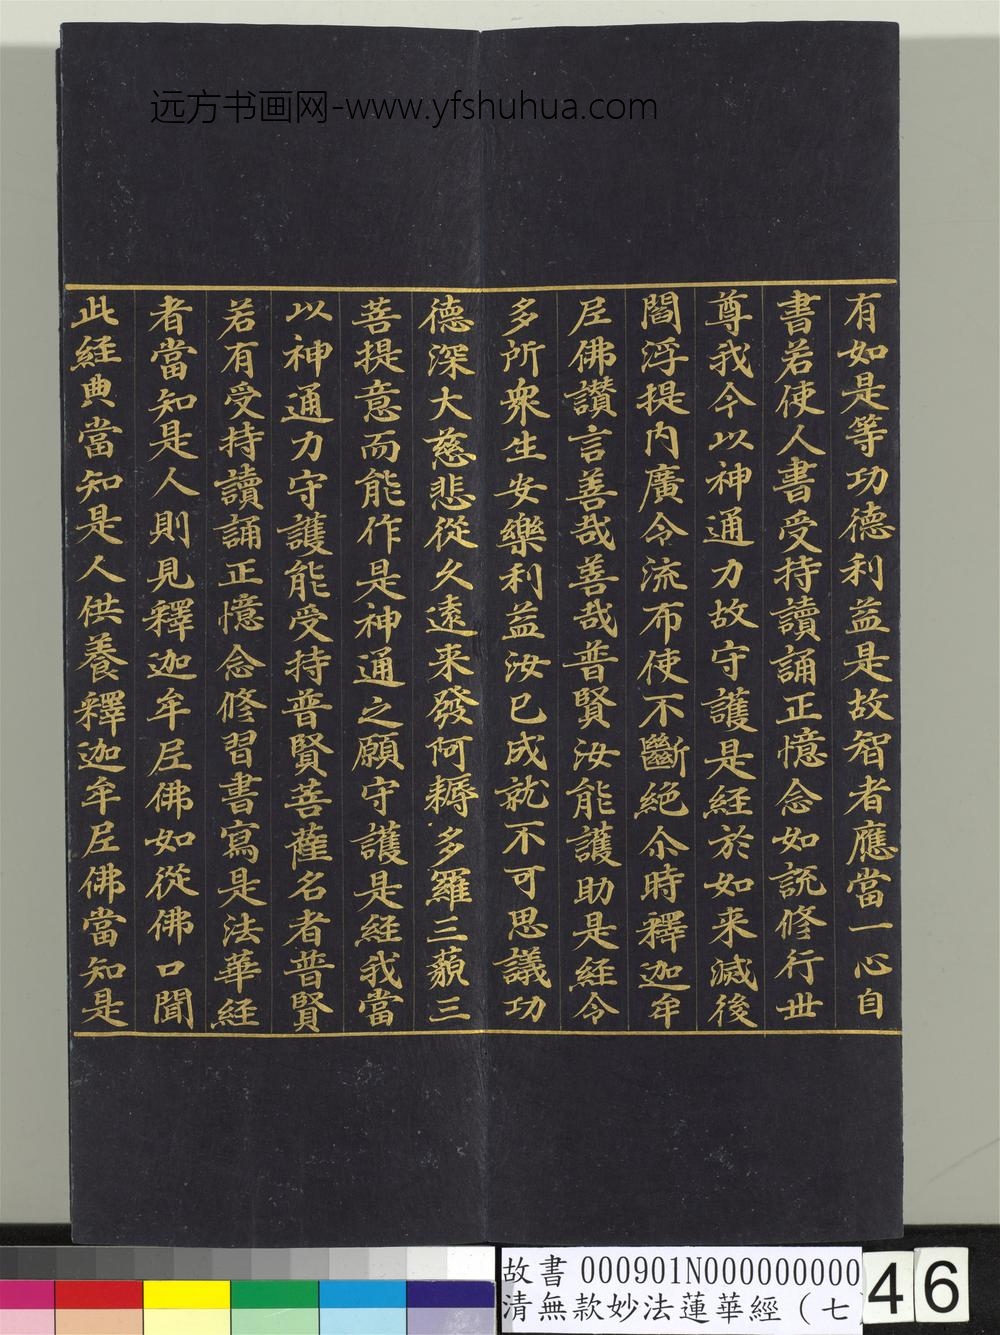 远方书画网-www.yfshuhua.com
有如是等功德利益是故智者應當一心自
書若使人書受持讀誦正憶念如說修行世
尊我今以神通力故守護是經於如来滅後
閻浮提內廣令流布使不斷絕尒時釋迦牟
尼佛讚言善哉善哉普賢汝能護助是経令
多所衆生安樂利益汝已成就不可思議功
德深大慈悲從久遠来發阿耨多羅三藐三
菩提意而能作是神通之願守護是経我當
以神通力守護能受持普賢菩薩名者普賢
若有受持讀誦正憶念修習書寫是法華経
者當知是人則見釋迦牟尼佛如從佛口聞
此経典當知是人供養釋迦牟尼佛當知是
故書 000901N000000000
清無款妙法蓮華經（七
46